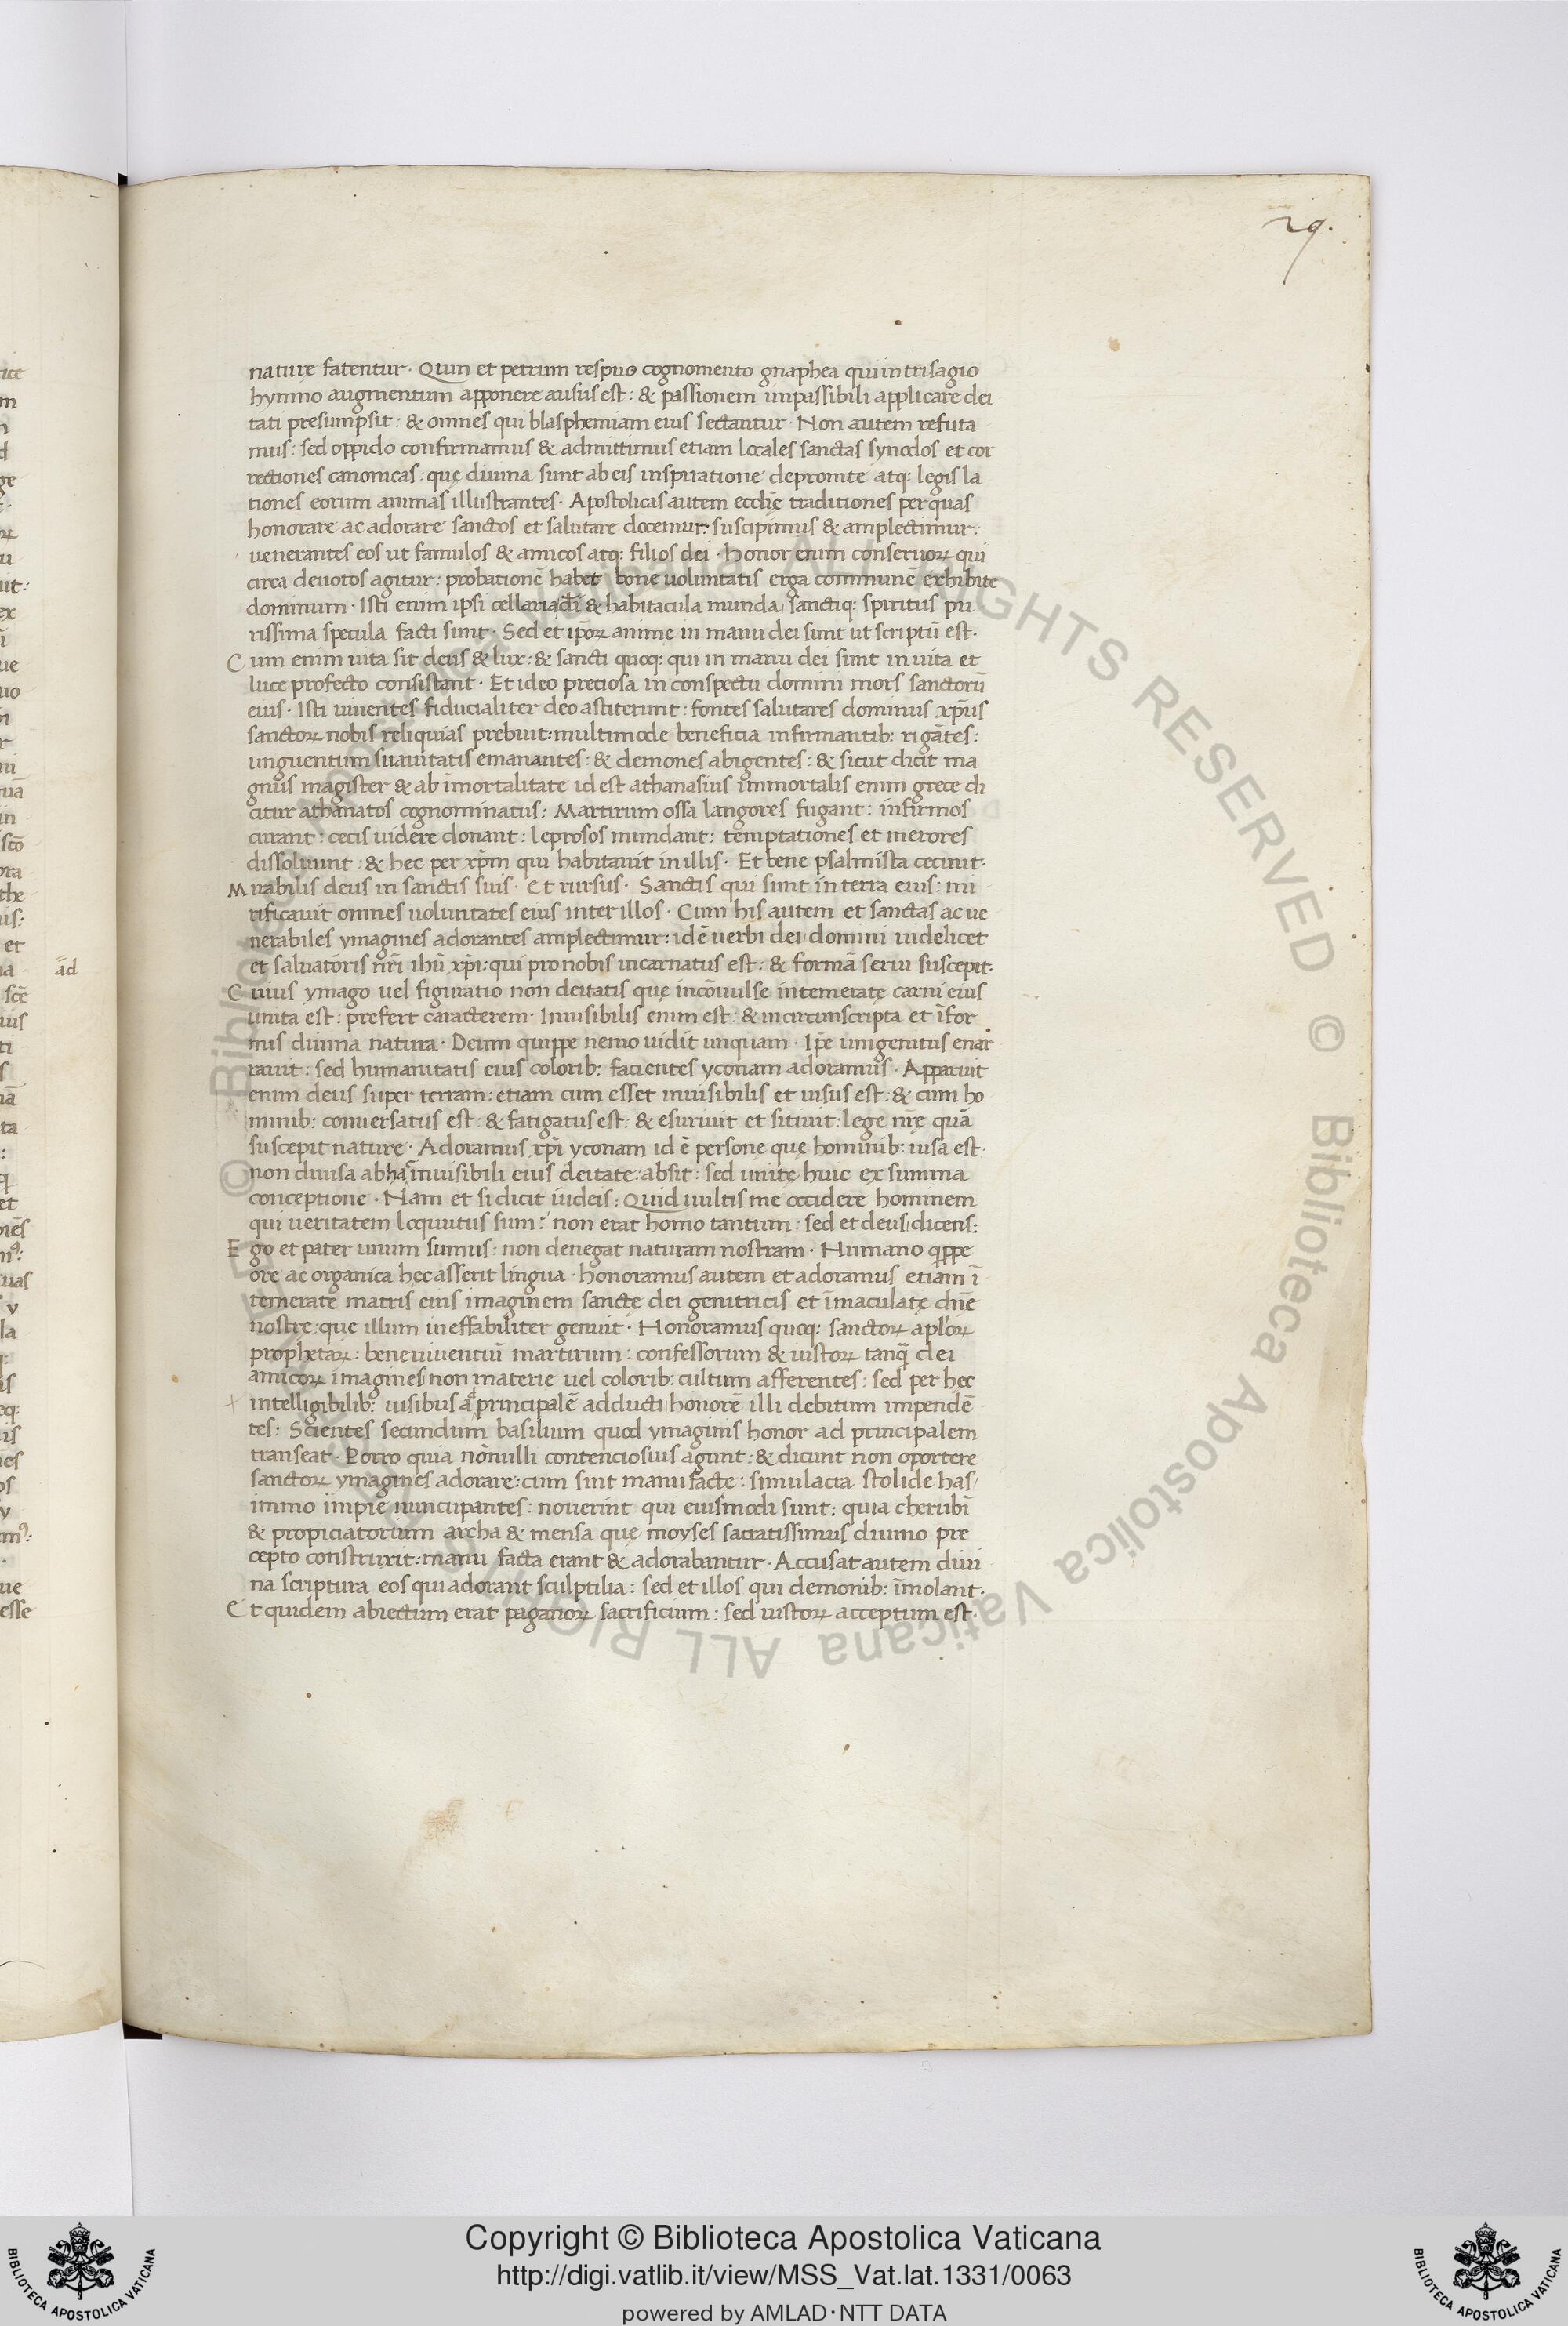 29.
nature fatentur · Quin et petrum respuo cognomento gnaphea qui in trisagio
hymno augmentum apponere ausus est : & passionem impassibili applicare dei
tati presumpsit : & omnes qui blasphemiam eius sectantur · Non autem refuta
mus : sed oppido confirmamus & admittimus etiam locales sanctas synodos et cor
rectiones canonicas · quę diuina sunt ab eis inspiratione depromte atq: legis la
tiones eorum animas illustrantes · Apostolicas autem ecclīę traditiones per quas
honorare ac adorare sanctos et salutare docemur : suscipimus & amplectimur :
uenerantes eos ut famulos & amicos atq: filios dei · honor enim conseruoꝝ qui
circa deuotos agitur : probationē habet bone uoluntatis erga communē exhibite
dominum · Isti enim ipsi cellaria dī & habitacula munda / sanctiq: spiritus pu
rissima specula facti sunt · Sed et ip̄oꝝ anime in manu dei sunt ut scriptū est ·
Cum enim uita sit deus & lux : & sancti quoq: qui in manu dei sunt in uita et
luce profecto consistant · Et ideo pretiosa in conspectu domini mors sanctorū
eius · Isti uiuentes fiducialiter deo astiterunt : fontes salutares dominus xp̄us
sanctoꝝ nobis reliquias prebuit : multimode beneficia infirmantib: rigātes :
unguentum suauitatis emanantes : & demones abigentes : & sicut dicit ma
gnus magister & ab īmortalitate id est athanasius immortalis enim grece di
citur athanatos cognominatus : Martirum ossa langores fugant : infirmos
curant : cecis uidere donant : leprosos mundant : temptationes et merores
dissoluunt : & hec per xp̄m qui habitauit in illis · Et bene psalmista cecinit ·
Mirabilis deus in sanctis suis · Et rursus · Sanctis qui sunt in terra eius : mi
rificauit omnes uoluntates eius inter illos · Cum his autem et sanctas ac ue
nerabiles ymagines adorantes amplectimur : id ē uerbi dei / domini uidelicet
et saluatoris nr̄i ihū xp̄i : qui pro nobis incarnatus est : & formā serui suscepit ·
Cuius ymago uel figuratio non deitatis quę incōuulse intemeratę carni eius
unita est : prefert caracterem · Inuisibilis enim est : & incircumscripta et īfor
mis diuina natura · Deum quippe nemo uidit unquam · Ip̄e unigenitus enar
rauit : sed humanitatis eius colorib: facientes yconam adoramus · Apparuit
enim deus super terram : etiam cum esset inuisibilis et uisus est : & cum ho
minib: conuersatus est : & fatigatus est : & esuriuit et sitiuit : lege nr̄ę quā
suscepit nature · Adoramus xp̄i yconam id ē persone que hominib: uisa est ·
non diuisa ab hac inuisibili eius deitate : absit : sed unite huic ex summa
conceptione · Nam et si dicit iudeis : Quid uultis me occidere hominem
qui ueritatem loquutus sum : non erat homo tantum : sed et deus / dicens :
Ego et pater unum sumus : non denegat naturam nostram · Humano qppe
ore ac organica hec asserit lingua · honoramus autem et adoramus etiam ī
temerate matris eius imaginem sancte dei genitricis et īmaculatę dn̄e
nostre : que illum ineffabiliter genuit · Honoramus quoq: sanctoꝝ apl'oꝝ
prophetaꝝ : bene uiuentiū martirum : confessorum & iustoꝝ tanq̄ dei
amicoꝝ imagines non materie uel colorib: cultum afferentes : sed per hec
intelligibilib: uisibus a principalē adducti / honorē illi debitum impendē
tes : Scientes secundum basilium quod ymaginis honor ad principalem
transeat · Porro quia nōnulli contenciosius agunt : & dicunt non oportere
sanctoꝝ ymagines adorare : cum sint manu facte : simulacra stolide has /
immo impie nuncupantes : nouerint qui eiusmodi sunt : quia cherubī
& propiciatorium archa & mensa quę moyses sacratissimus diuino pre
cepto construxit : manu facta erant & adorabantur · Accusat autem diui
na scriptura eos qui adorant sculptilia : sed et illos qui demonib: īmolant ·
Et quidem abiectum erat paganoꝝ sacrificium : sed iustoꝝ acceptum est ·
ād
© Biblioteca Apostolica Vaticana ALL RIGHTS RESERVED
© Biblioteca Apostolica Vaticana ALL RIGHTS RESERVED
Copyright © Biblioteca Apostolica Vaticana
http://digi.vatlib.it/view/MSS_Vat.lat.1331/0063
powered by AMLAD·NTT DATA
BIBLIOTECA APOSTOLICA VATICANA
BIBLIOTECA APOSTOLICA VATICANA